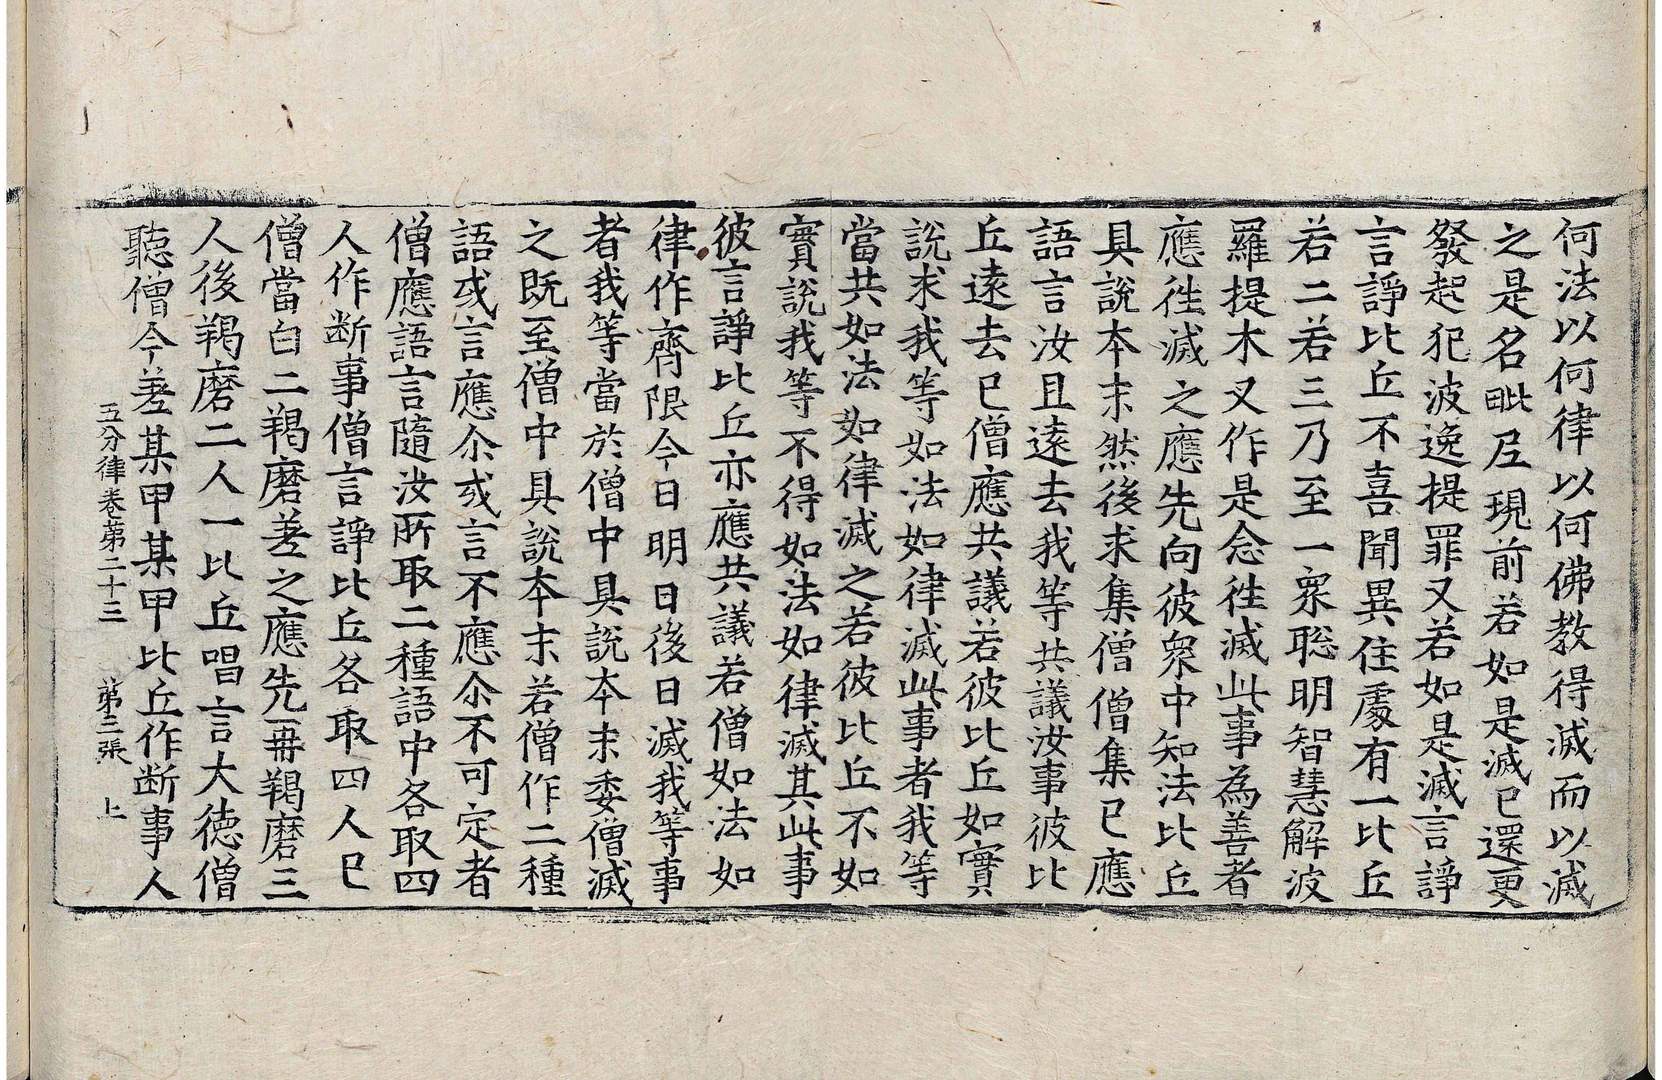 何法以何律以何佛教得滅而以滅
之是名毗尼現前若如是滅已還更
發起犯波逸提罪又若如是滅言諍
言諍比丘不喜聞異住處有一比丘
若二若三乃至一衆聡明智慧解波
羅提木叉作是念徃滅此事為善者
應徃滅之應先向彼衆中知法比丘
具說本末然後求集僧僧集已應
語言汝且遠去我等共議汝事彼比
丘遠去已僧應共議若彼比丘如實
說求我等如法如律滅此事者我等
當共如法如律滅之若彼比丘不如
實說我等不得如法如律滅其此事
彼言諍比丘亦應共議若僧如法如
律作齊限今日明日後日滅我等事
者我等當於僧中具說本末委僧滅
之既至僧中具說本末若僧作二種
語或言應尒或言不應尒不可定者
僧應語言隨汝所取二種語中各取四
人作断事僧言諍比丘各取四人已
僧當白二羯磨差之應先冊羯磨三
人後羯磨二人一比丘唱言大德僧
聽僧今差某甲某甲比丘作断事人
五分律卷苐二十三 第三張 上